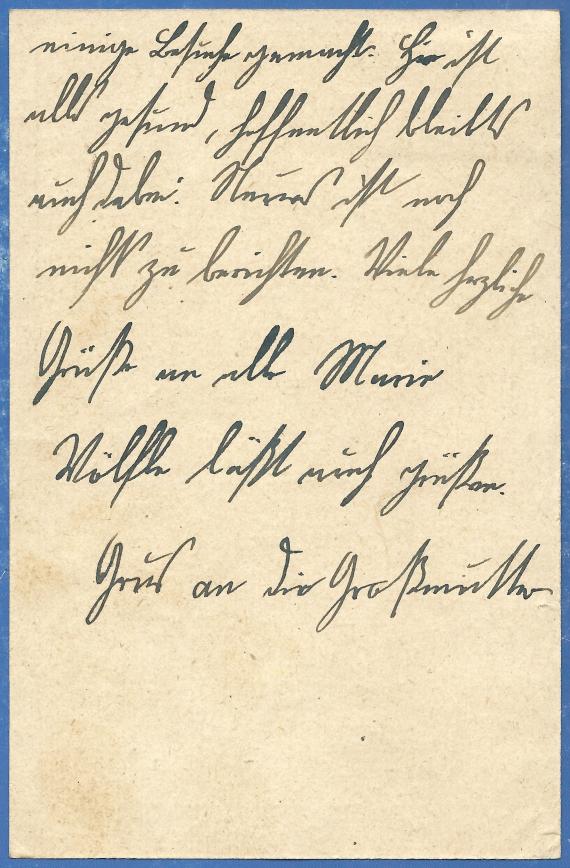 einige Besuche gemacht. Hier ist
alles gesund, hoffentlich bleibts
auch dabei. Neues ist noch
nicht zu berichten. Viele herzliche
Grüße an alle Marie
Wölfle läßt auch grüßen.
Grus an die Großmutter